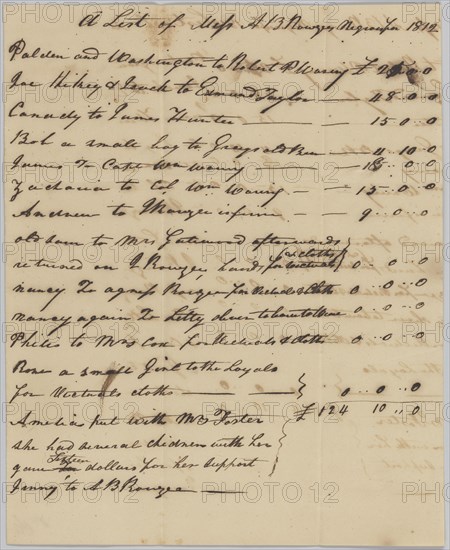 A List of Mess A B Rouzes Negroes for 1812
and Washington to Robert P Waring £ 25 0 0
Joe Hikey & Isaack to Edmund Taylor — 48 .. 0 .. 0
Canady to James Hunter — 15 .. 0 .. 0
Bob a small boy to — 4 .. 10 .. 0
James To Capt Wm Waring — 18 .. 0 .. 0
Zacharia to Col Wm Waring — 15 .. 0 .. 0
Andrew to — 9 .. 0 .. 0
old Sam to Mrs Gatewood afterwards
returned on J Rouzes hands for victuals & cloths 0 .. 0 .. 0
nancy To agness Rouzee for victuals & cloths 0 .. 0 .. 0
nancy again To Letty 0 .. 0 .. 0
to Mrs Cox for victuals & cloths 0 .. 0 .. 0
Rose a small Girl to the Loyals
for victuals cloths — 0 .. 0 .. 0
Amelia put with Mr Foster £ 124 10 .. 0
she had several children with her
gave fifteen dollars for her support
Jenny to A B Rouzee —
PHOTO12